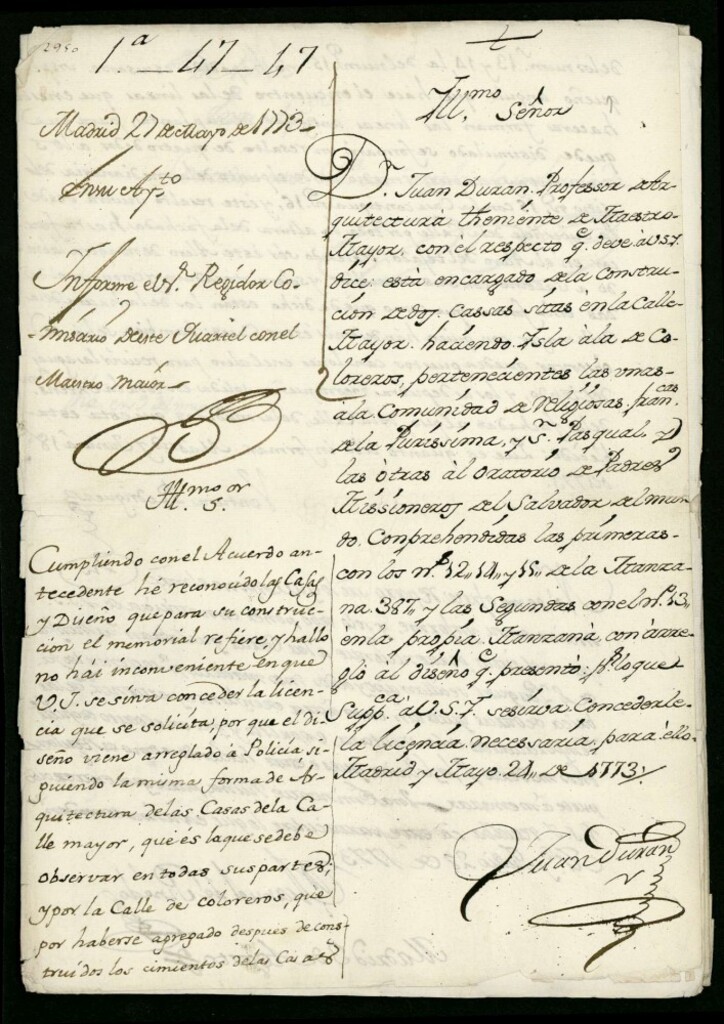 2950
1.ª 47 – 47
Madrid 27 de Mayo de 1773
En su Ay.to
Informe el S.r Regidor Co-
-misario de este Quartel con el
Maestro maior
Ill.mo S.or
Cumpliendo con el Acuerdo an-
tecedente hé reconocido las Casas
y Diseño que para su construc-
cion el memorial refiere, y hallo
no hái inconveniente en que
V.I. se sirva conceder la licen-
cia que se solicita, por que el di-
seño viene arreglado á Policia si-
guiendo la misma forma de Ar-
quitectura de las Casas de la Ca-
lle mayor, que és la que se debe
observar en todas sus partes;
y por la Calle de coloreros, que
por haberse agregado despues de cons-
truidos los cimientos de las Casas
Ill.mo Señor
D.n Juan Duran Professor de Ar-
quitectura theniente de Maestro
Mayor, con el respecto q. deve à V.S.I.
dice: està encargado de la Constru-
cion de dos Cassas sitas en la Calle
Mayor haciendo Isla à la de Co-
loreros, pertenecientes las unas
à la Comunidad de Religiosas fran.cas
de la Purissima, y S.n Pasqual, y
las otras àl Oratorio de Padres
Missioneros del Salvador del mun-
do. Conprehendidas las primeras
con los n.s 12,, 14,, y 15,, de la Manza-
na 387,, y las Segundas con el n.º 13
en la propia Manzana con arre-
glo àl diseño q. presento; p.r lo que
Supp.ca à V.S.I. se sirva Concederle
la licencia necessaria para ello
Madrid y Mayo 24,, de 1773,,
Juan Duran